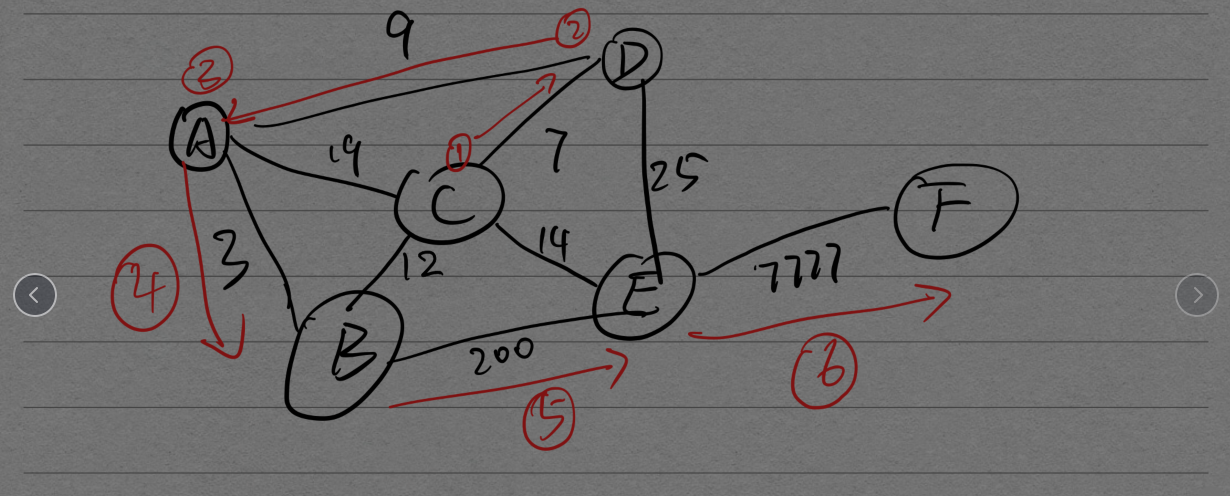 9
②
D
③
A
19
①
7
C
25
F
④
3
12
14
E
7777
B
200
⑤
⑥